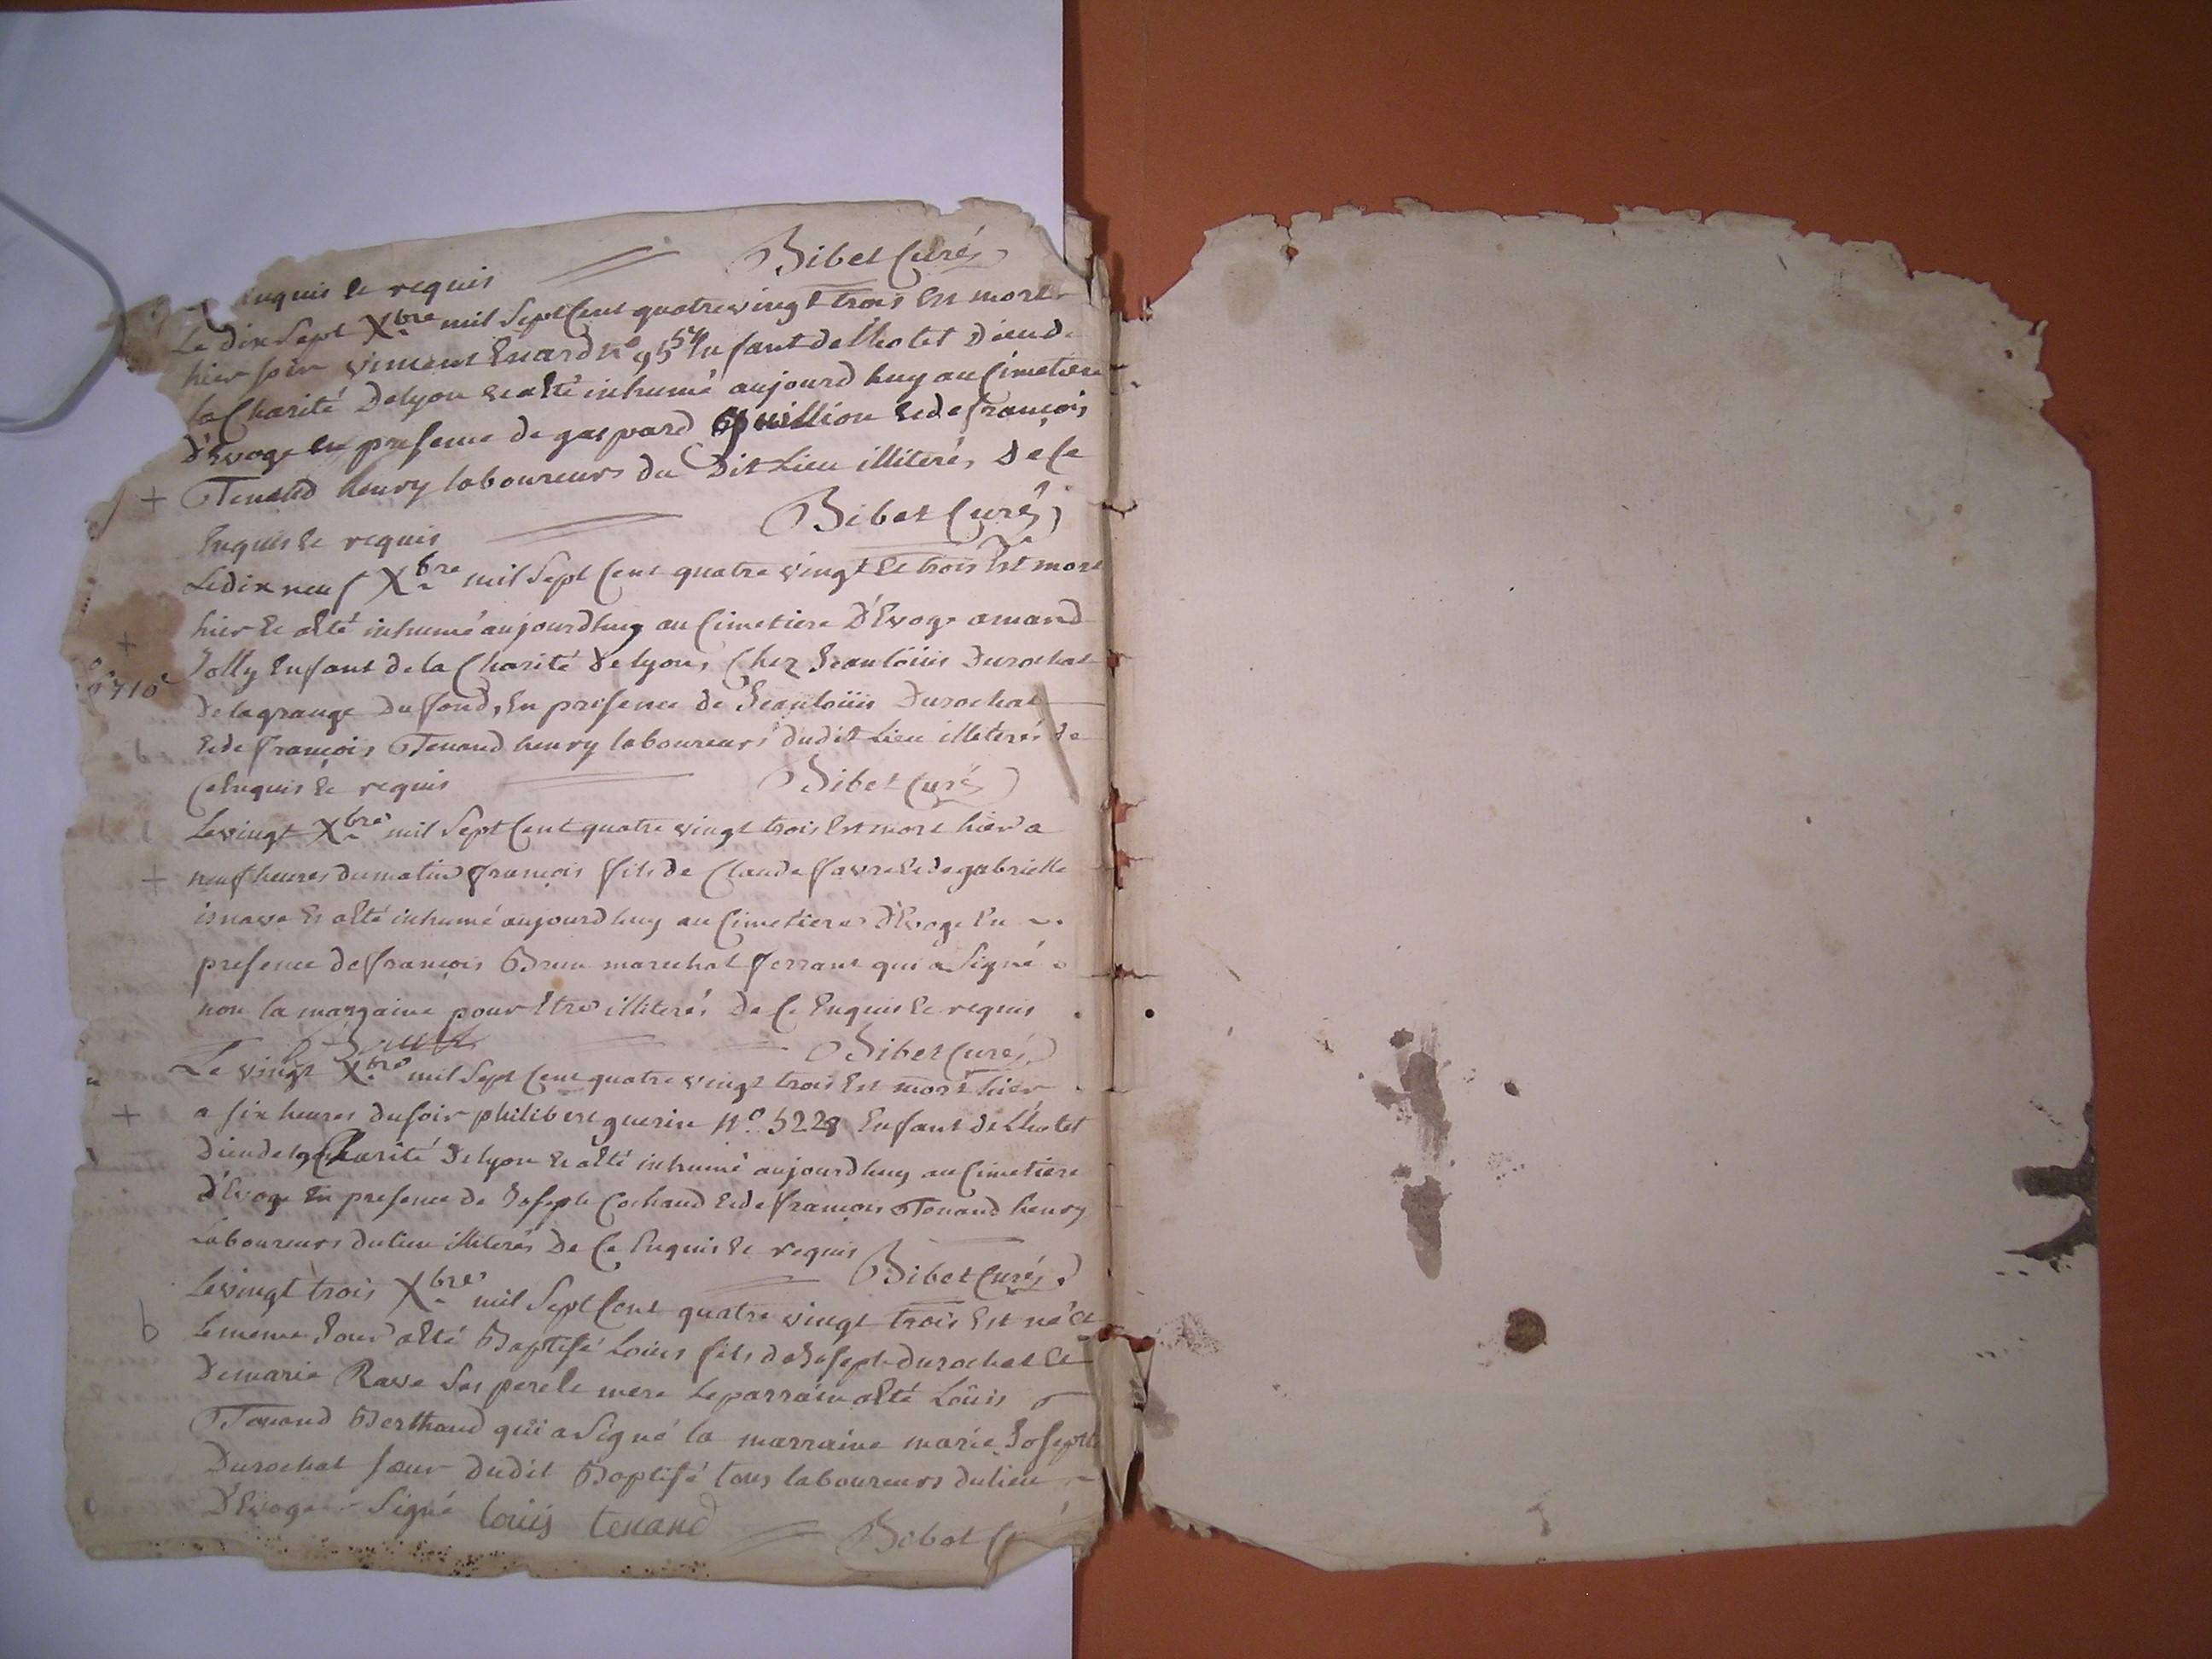 enquis et requis Bibet Curé
Le dix Sept Xbre mil Sept Cent quatre vingt trois Est mort
hier soir vincent Enard n° Enfant de L'hotel Dieu de
la Charité Delyon et a Eté inhumé aujourd huy au Cimetiere
D'Evoge En presence de gaspard Quillion Et de françois
+ Tenand henry laboureurs du Dit Lieu illiterés De Ce
Enquis Et requis Bibet Curé
Le dix neuf Xbre mil Sept Cent quatre vingt Et trois Est mort
hier Et a Eté inhumé aujourdhuy au Cimetiere D'Evoge amand
+ Jolly Enfant de la Charité De lyon, Chez Jean loüis Durochat
De la grange Du fond, En presence de Jean loüis Durochat
Et de françois Tenand henry laboureurs dudit Lieu illiterés de
Ce Enquis Et requis Bibet Curé
Le vingt Xbre mil Sept Cent quatre vingt trois Est mort hier a
+ neuf heures du matin françois fils de Claude favre Et de gabrielle
Et a Eté inhumé aujourd huy au Cimetiere D'Evoge En
presence de françois Brun marechal ferrant qui a Signé
non la pour Etre illiterés De Ce Enquis Et requis
Bibet Curé
Le vingt Xbre mil Sept Cent quatre vingt trois Est mort hier
+ a six heures du soir philibert guerin N° 5228 Enfant de L'hotel
Dieu de la Charité De lyon Et a Eté inhumé aujourd huy au Cimetiere
d'Evoge En presence de Joseph Cochaud Et de françois Tenand henry
Laboureurs du lieu illiterés De Ce Enquis Et requis Bibet Curé
Le vingt trois Xbre mil Sept Cent quatre vingt trois Est né et
b Le meme Jour a Eté Baptisé Loüis fils de Joseph Durochat Et
De marie Rave Ses pere Et mere Le parrain a Eté Loüis
Tenand Berthaud qui a Signé la marraine marie Josephte
Durochat soeur dudit Baptisé tous laboureurs du lieu
D'Evoge Signé louis tenand Bibet